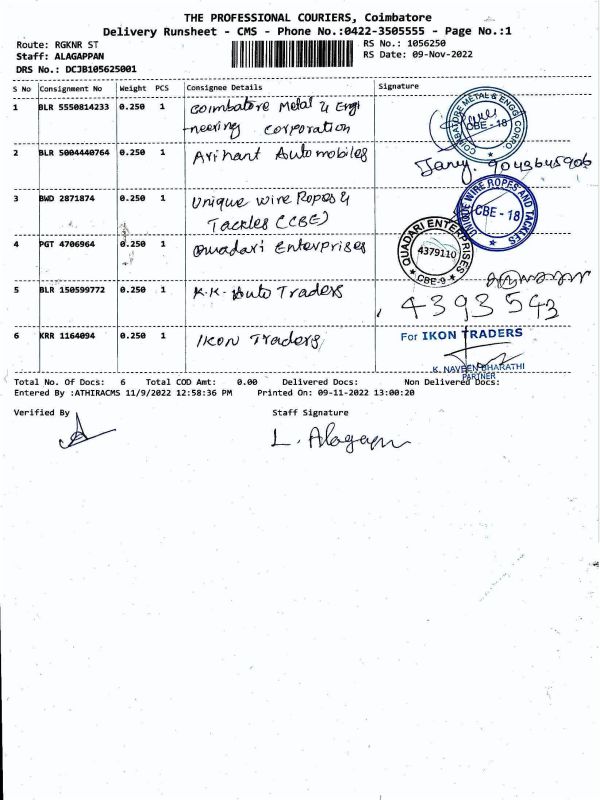 THE PROFESSIONAL COURIERS, Coimbatore
Delivery Runsheet - CMS - Phone No.:0422-3505555 - Page No.:1
Route: RGKNR ST
RS No.: 1056250
Staff: ALAGAPPAN
RS Date: 09-Nov-2022
DRS No.: DCJB105625001
S No Consignment No Weight PCS Consignee Details Signature
1 BLR 5550814233 0.250 1 Coimbatore Metal & Engi
-neering Corporation
COIMBATORE METAL & ENGG CORPO
CBE - 18
2 BLR 5004440764 0.250 1 Arihant Automobiles
9043645906
3 BWD 2871874 0.250 1 Unique Wire Ropes &
Tackles (CBE)
UNIQUE WIRE ROPES AND TACKLES
CBE - 18
4 PGT 4706964 0.250 1 Quadari Enterprises
QUADARI ENTERPRISES
4379110
CBE-9
5 BLR 150599772 0.250 1 K.K. Auto Traders
4393543
6 KRR 1164094 0.250 1 Ikon Traders
For IKON TRADERS
K. NAVEEN BHARATHI
PARTNER
Total No. Of Docs: 6 Total COD Amt: 0.00 Delivered Docs: Non Delivered Docs:
Entered By :ATHIRACMS 11/9/2022 12:58:36 PM Printed On: 09-11-2022 13:00:20
Verified By Staff Signature
L. Alagappan